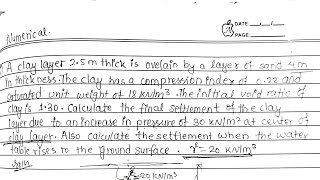 DATE
PAGE
Numerical.
A clay layer 2.5 m thick is ovelain by a layer of sand 4 m
in thickness. The clay has a compression index of 0.22 and
saturated unit weight of 18 kN/m³. The initial void ratio of
clay is 1.30. Calculate the final settlement of the clay
layer due to an increase in pressure of 30 kN/m² at center of
clay layer. Also calculate the settlement when the water
table rises to the ground surface. γ = 20 kN/m³
γ = 20 kN/m³